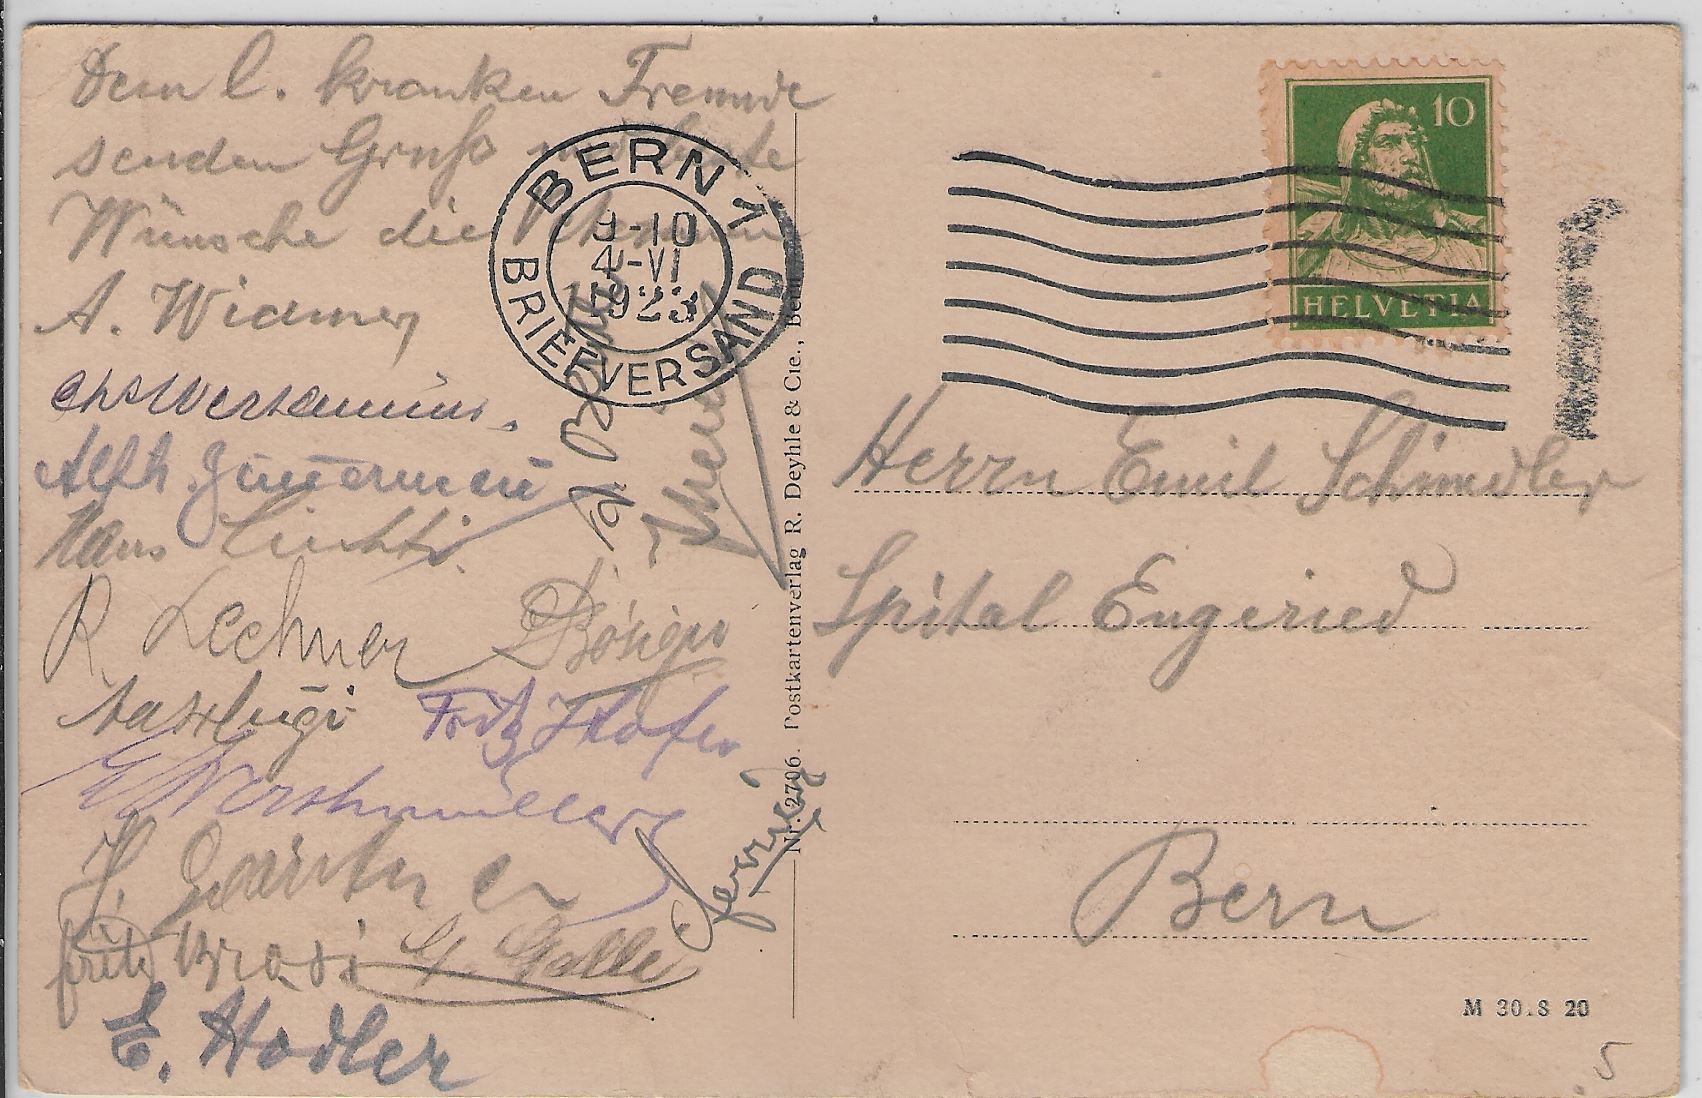 Dem l. kranken Freunde
senden Gruß und beste
Wünsche die
A. Widmer
Alfr.
Hans Liechti.
R. Lechner
Fritz Hofer
E. Werthmüller
H. Gärtner
Fritz Brösi G. Galle
E. Hodler
BERN 1
9-10
4-VI
1923
BRIEFVERSAND
Nr. 2706. Postkartenverlag R. Deyhle & Cie., Bern
10
HELVETIA
Herrn Emil Schindler
Spital Engeried
Bern
M 30.8 20
5